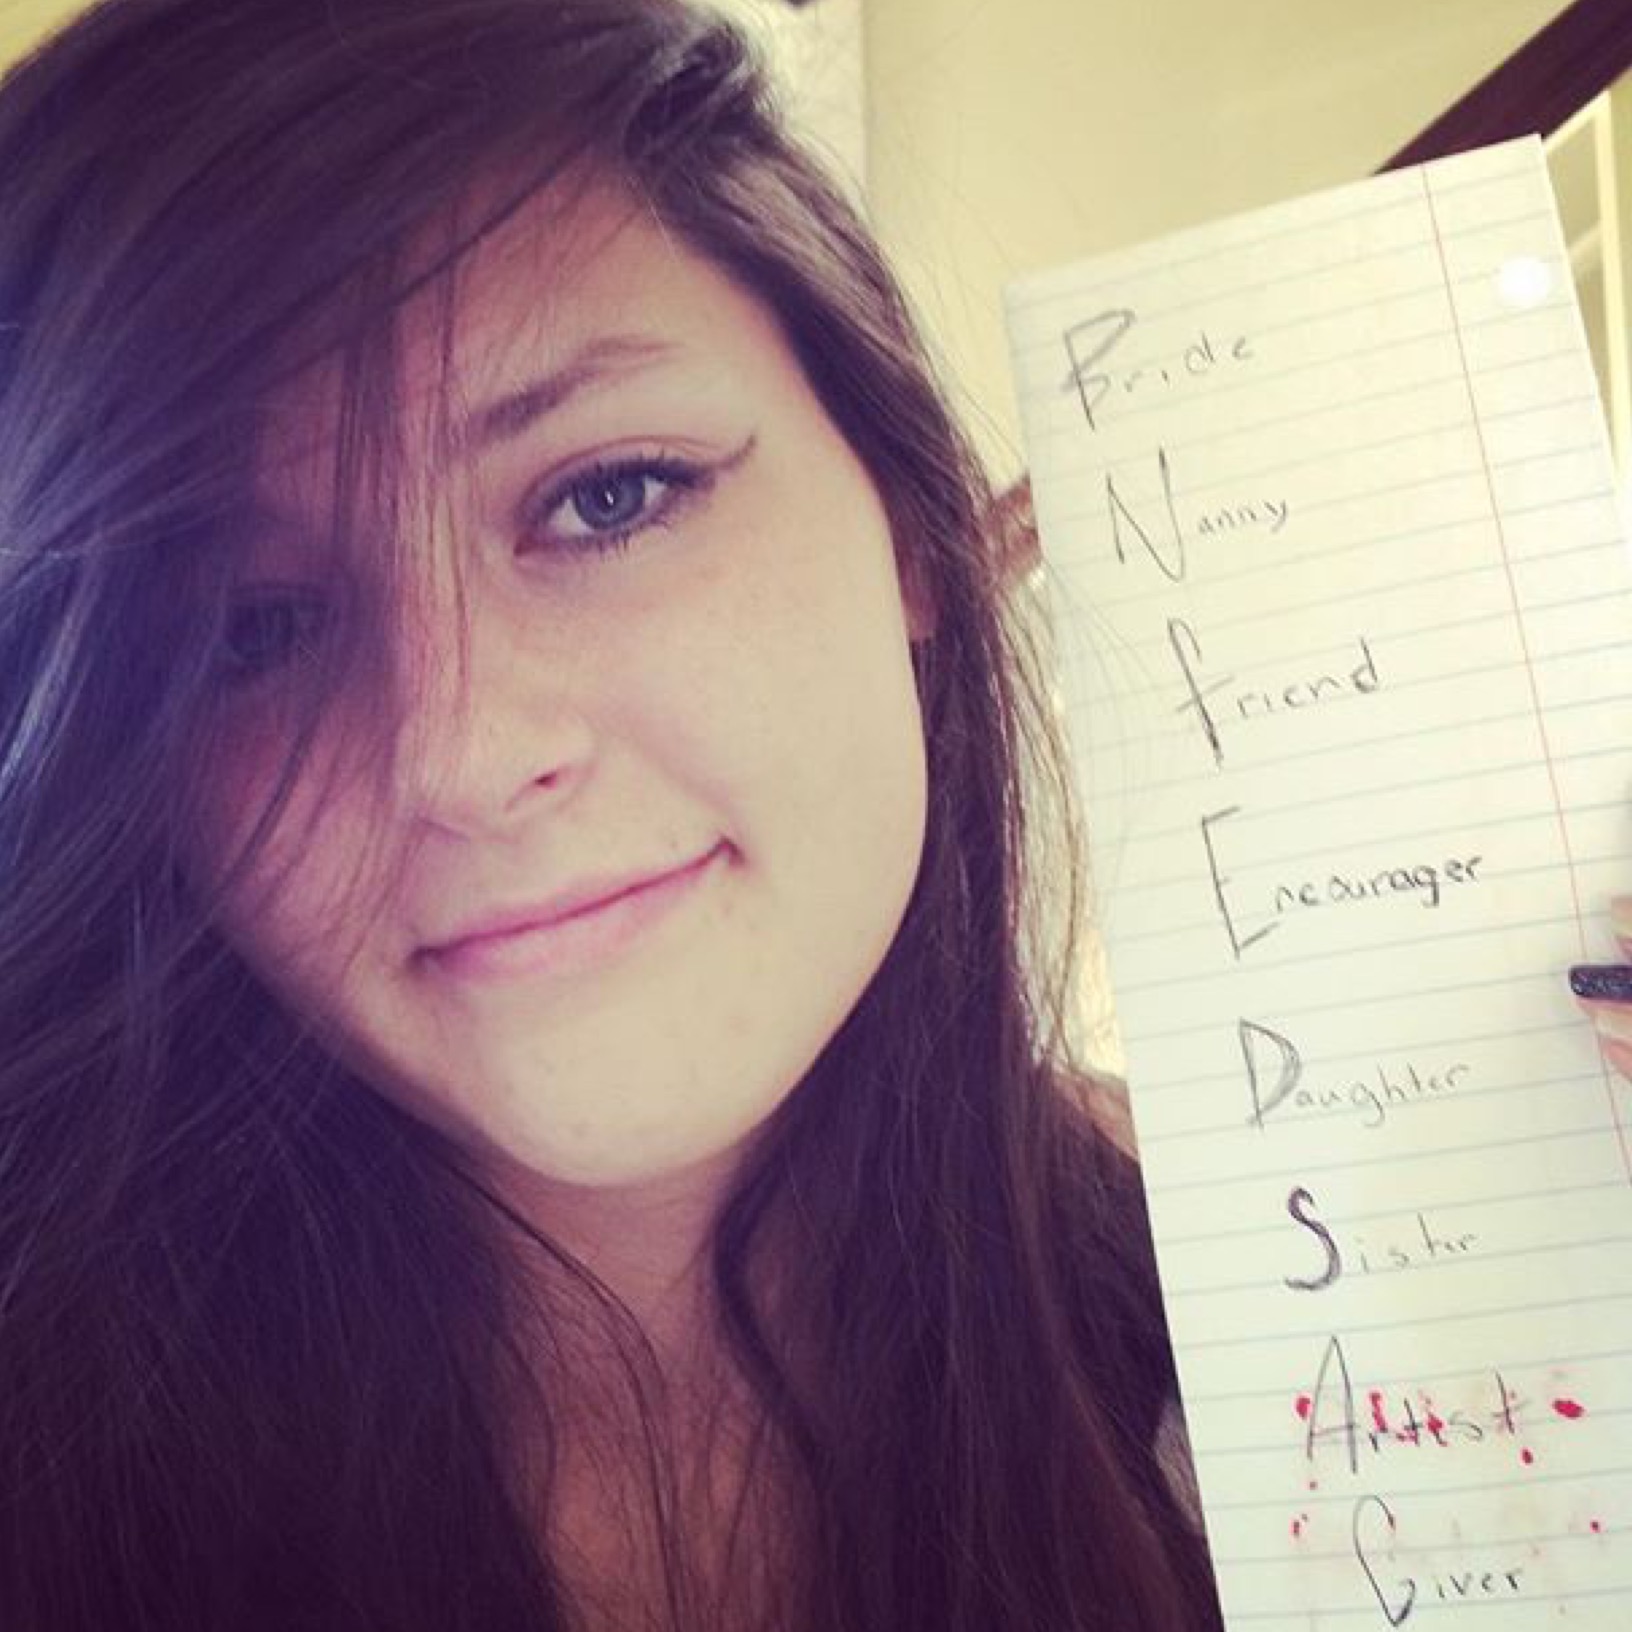 Bride
Nanny
friend
Encourager
Daughter
Sister
Artist
Giver